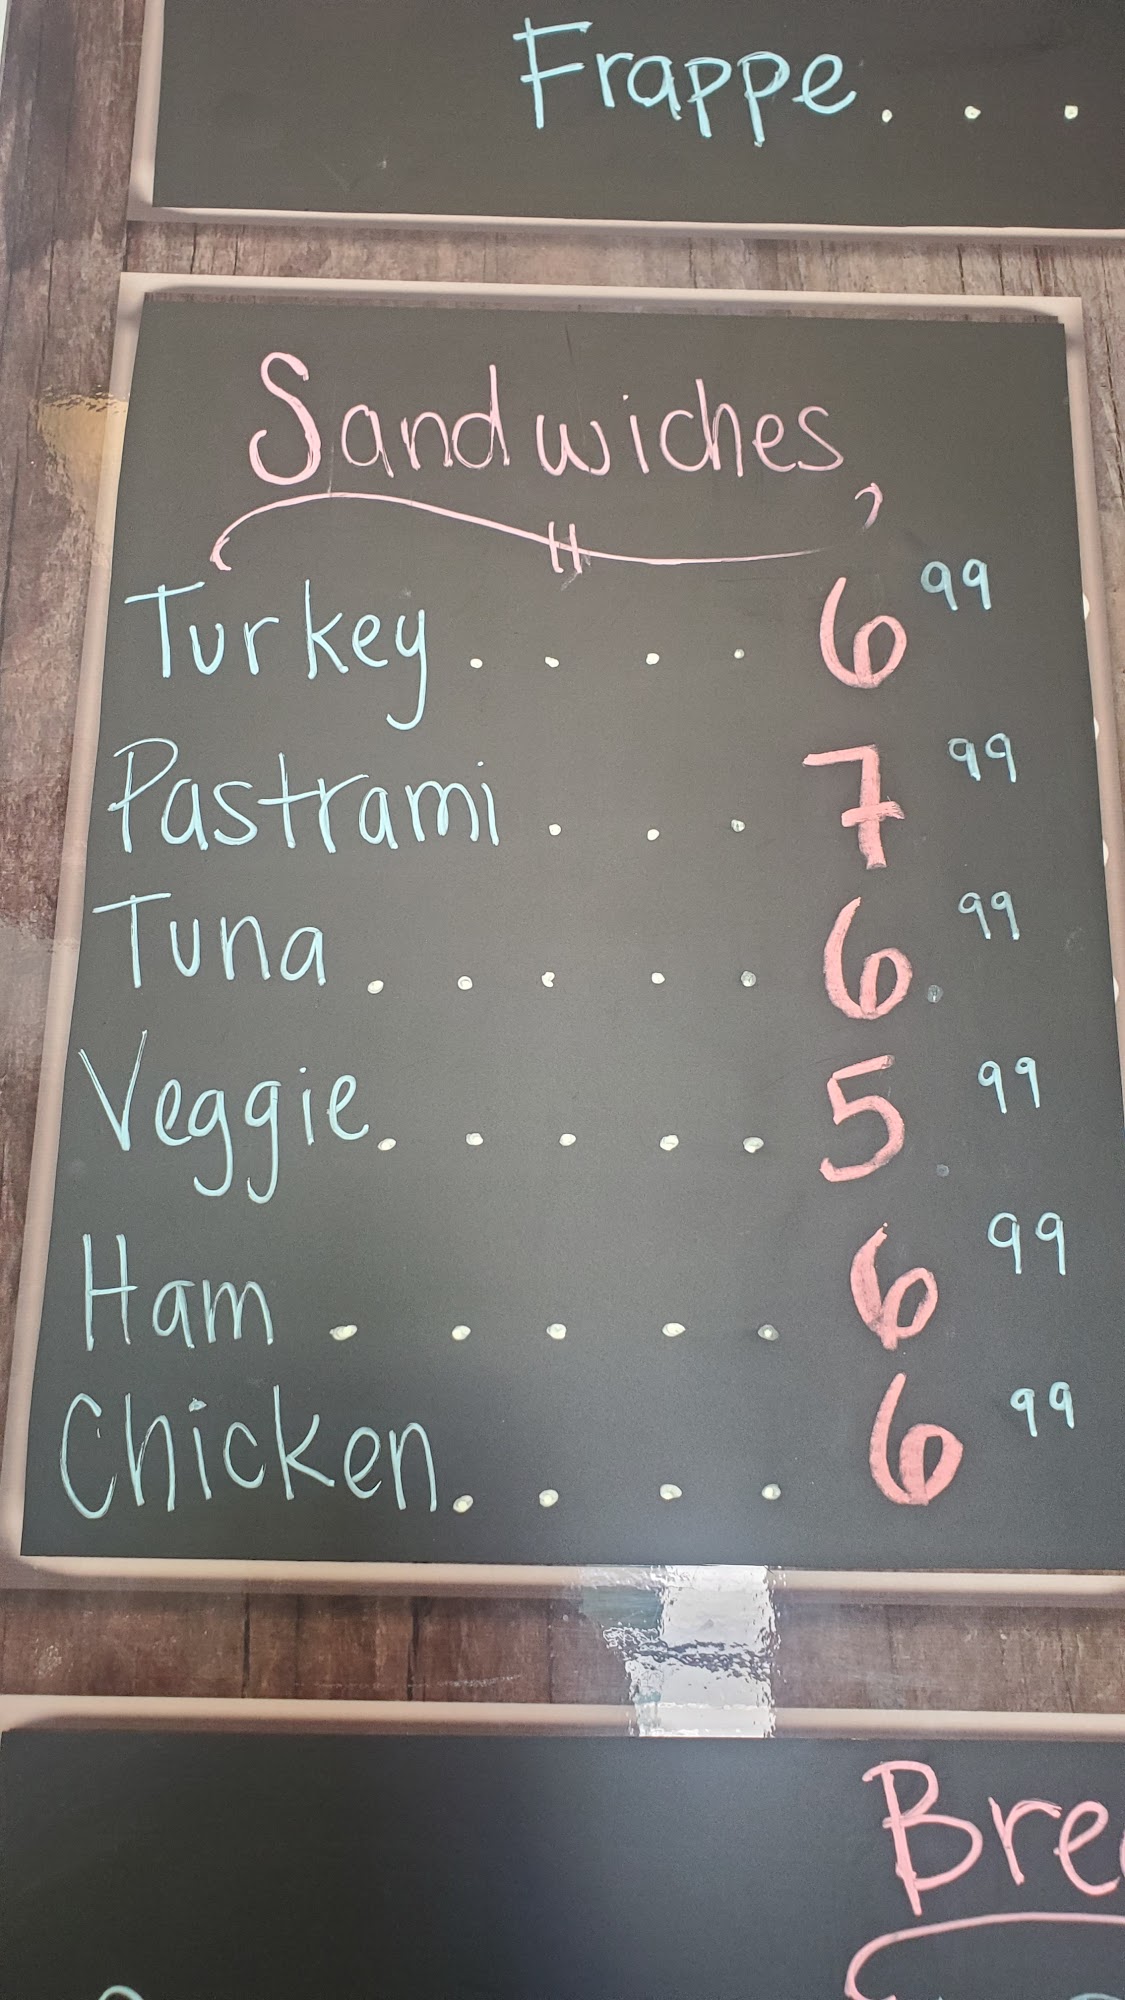 Frappe. . .
Sandwiches
Turkey . . . . 6 99
Pastrami . . . 7 99
Tuna . . . . . 6. 99
Veggie. . . . . 5. 99
Ham . . . . . 6 99
Chicken. . . . 6 99